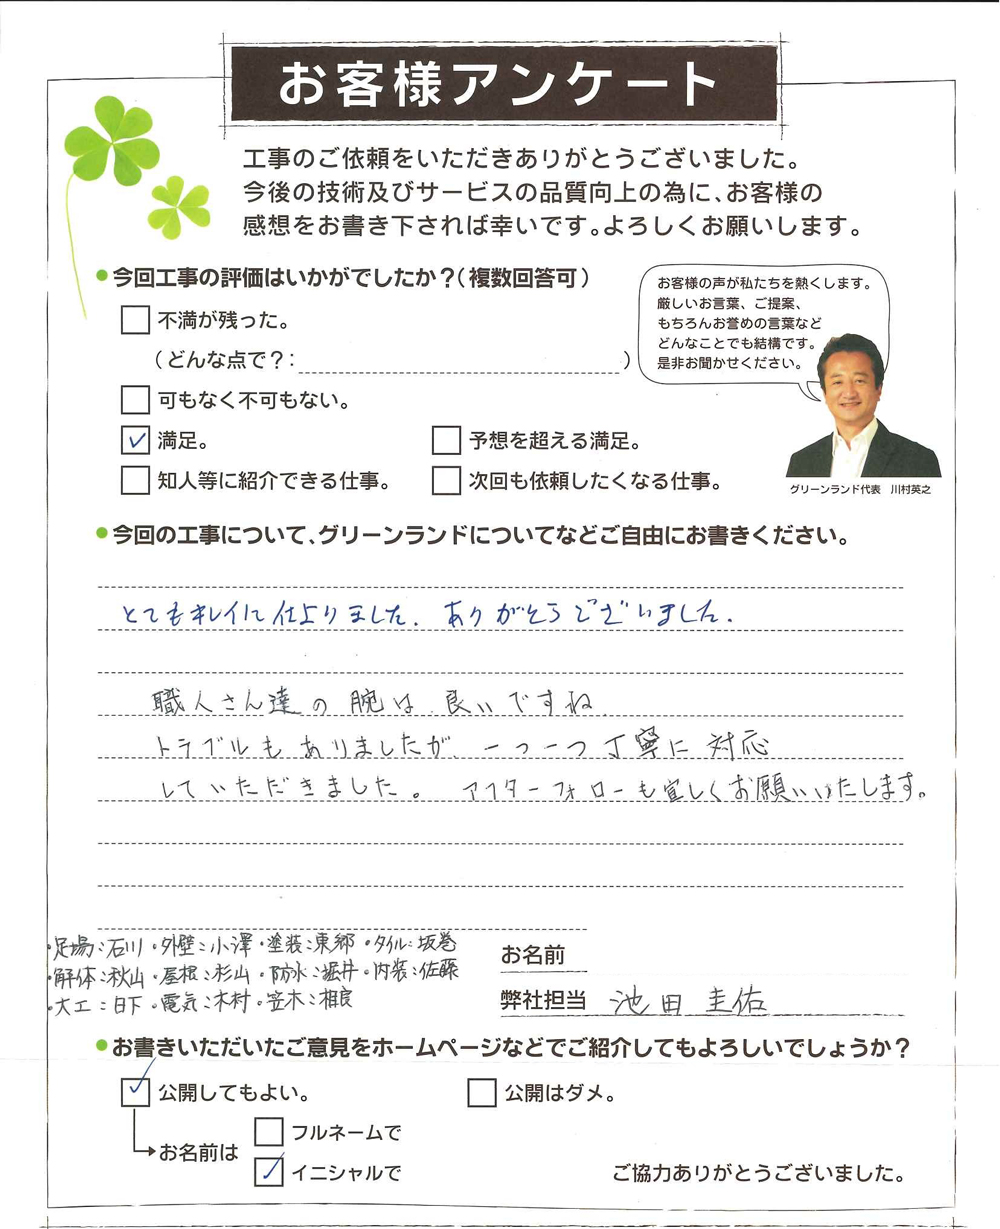 お客様アンケート
工事のご依頼をいただきありがとうございました。
今後の技術及びサービスの品質向上の為に、お客様の
感想をお書き下されば幸いです。よろしくお願いします。
●今回工事の評価はいかがでしたか?(複数回答可)
不満が残った。
(どんな点で?: )
可もなく不可もない。
✓ 満足。
予想を超える満足。
知人等に紹介できる仕事。
次回も依頼したくなる仕事。
お客様の声が私たちを熱くします。
厳しいお言葉、ご提案、
もちろんお誉めの言葉など
どんなことでも結構です。
是非お聞かせください。
グリーンランド代表 川村英之
●今回の工事について、グリーンランドについてなどご自由にお書きください。
とてもキレイに仕上りました。ありがとうございました。
職人さん達の腕は良いですね。
トラブルもありましたが、一つ一つ丁寧に対応
していただきました。アフターフォローも宜しくお願いいたします。
・足場:石川・外壁:小澤・塗装:東郷・タイル:坂巻
・解体:秋山・屋根:杉山・防水:堀井・内装:佐藤
・大工:日下・電気:木村・笠木:相良
お名前
弊社担当 池田圭佑
●お書きいただいたご意見をホームページなどでご紹介してもよろしいでしょうか?
✓ 公開してもよい。
公開はダメ。
お名前は
フルネームで
✓ イニシャルで
ご協力ありがとうございました。